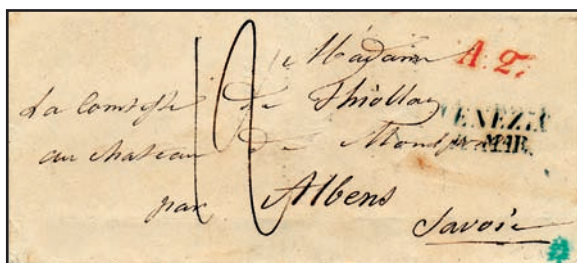 Madame A. 2.
La Comtesse de Thiollaz
VENEZIA
MAR.
au chateau de
par Albens
Savoie